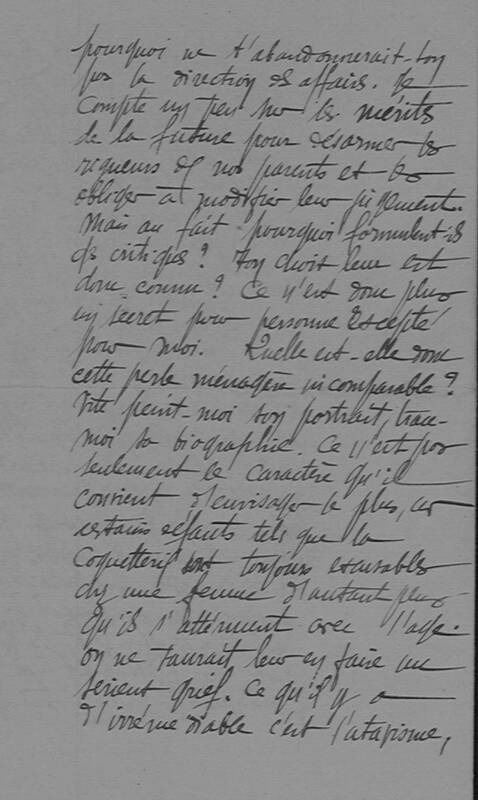 pourquoi ne t'abandonnerait-on
pas la direction des affaires. Je
compte un peu sur les mérites
de la future pour désarmer les
rigueurs de nos parents et les
obliger à modifier leur jugement.
Mais au fait pourquoi formulent-ils
des critiques ? Ton choix leur est
donc connu ? Ce n'est donc plus
un secret pour personne excepté
pour moi. Quelle est-elle donc
cette perle ménagère incomparable ?
Vite peint-moi son portrait, trace-
moi sa biographie. Ce n'est pas
seulement le caractère qu'il
convient d'envisager le plus, car
certains défauts tels que la
coquetterie sont toujours excusables
chez une femme d'autant plus
qu'ils s'atténuent avec l'âge.
On ne saurait leur en faire un
sérieux grief. Ce qu'il y a
d'irrémédiable c'est l'atavisme,